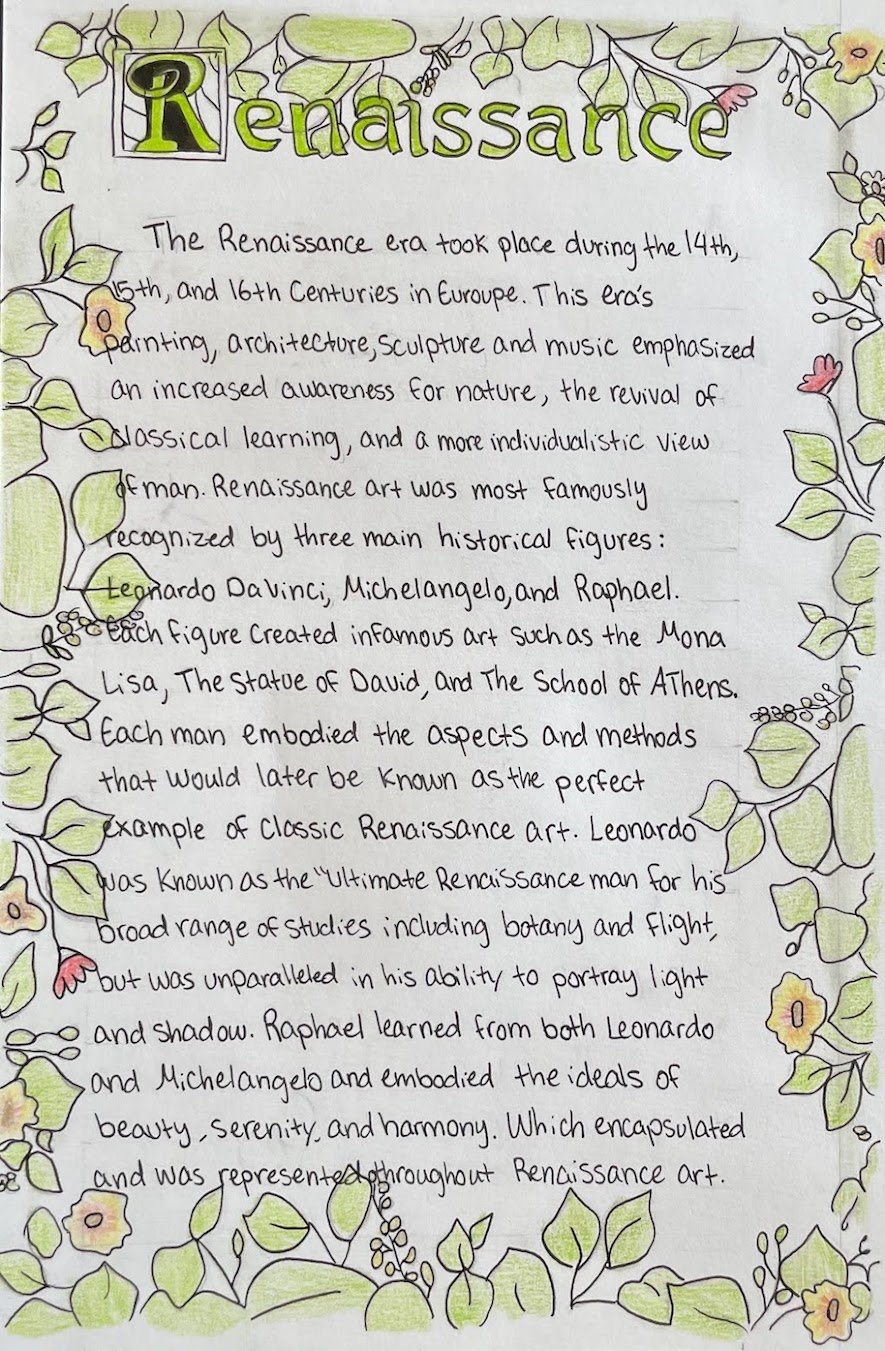 Renaissance
The Renaissance era took place during the 14th,
15th, and 16th Centuries in Euroupe. This era's
painting, architecture, sculpture and music emphasized
an increased awareness for nature, the revival of
classical learning, and a more individualistic view
of man. Renaissance art was most famously
recognized by three main historical figures:
Leonardo DaVinci, Michelangelo, and Raphael.
Each figure created infamous art such as the Mona
Lisa, The Statue of David, and The School of AThens.
Each man embodied the aspects and methods
that would later be known as the perfect
example of Classic Renaissance art. Leonardo
was known as the "Ultimate Renaissance man for his
broad range of studies including botany and flight,
but was unparalleled in his ability to portray light
and shadow. Raphael learned from both Leonardo
and Michelangelo and embodied the ideals of
beauty, serenity, and harmony. Which encapsulated
and was represented throughout Renaissance art.